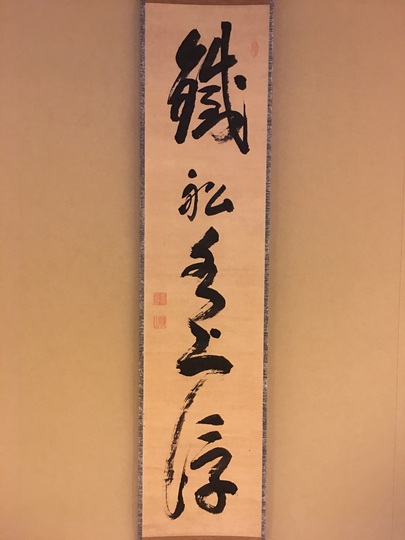 鐵舩水上浮